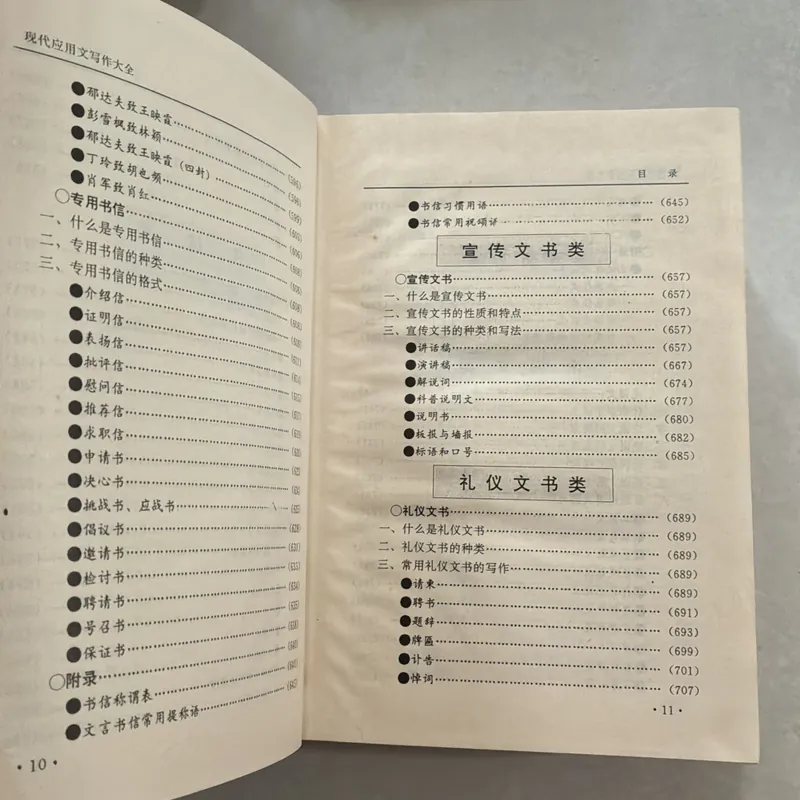 现代应用文写作大全
●郁达夫致王映霞
●彭雪枫致林颖
●郁达夫致王映霞（四封）
●丁玲致胡也频
●肖军致肖红
○专用书信
一、什么是专用书信
二、专用书信的种类
三、专用书信的格式
●介绍信
●证明信
●表扬信
●批评信
●慰问信
●推荐信
●求职信
●申请书
●决心书
●挑战书、应战书
●倡议书
●邀请书
●检讨书
●聘请书
●号召书
●保证书
○附录
●书信称谓表
●文言书信常用提称语
·10·
目 录
●书信习惯用语……（645）
●书信常用祝颂语……（652）
宣传文书类
○宣传文书……（657）
一、什么是宣传文书……（657）
二、宣传文书的性质和特点……（657）
三、宣传文书的种类和写法……（657）
●讲话稿……（657）
●演讲稿……（667）
●解说词……（674）
●科普说明文……（677）
●说明书……（680）
●板报与墙报……（682）
●标语和口号……（685）
礼仪文书类
○礼仪文书……（689）
一、什么是礼仪文书……（689）
二、礼仪文书的种类……（689）
三、常用礼仪文书的写作……（689）
●请柬……（689）
●聘书……（691）
●题辞……（693）
●牌匾……（699）
●讣告……（701）
●悼词……（707）
·11·